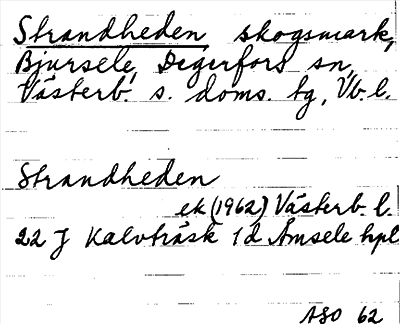 Strandheden, skogsmark,
Bjursele, Degerfors sn,
Västerb. s. doms. tg, Vb. l.
Strandheden
ek (1962) Västerb. l.
22 J Kalvträsk 1 d Åmsele hpl
ASO 62